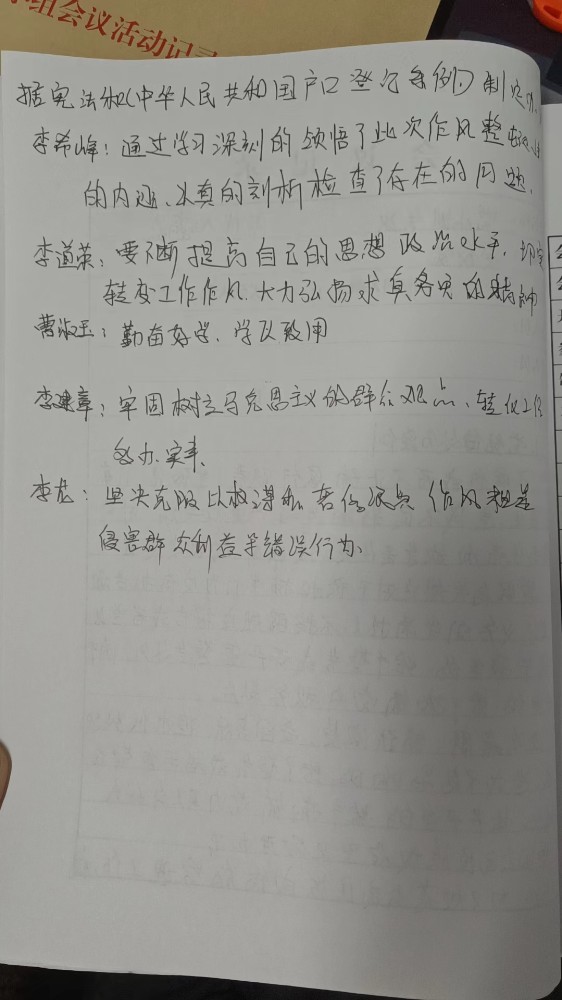 组会议活动记录
据宪法和《中华人民共和国户口登记条例》制定
李希峰：通过学习深刻的领悟了此次作风整顿
的内涵、认真的剖析检查了存在的问题.
李道荣：要不断提高自己的思想政治水平，切实
转变工作作风.大力弘扬求真务实的精神
曹淑玉：勤奋好学、学以致用
李建章：牢固树立马克思主义的群众观点、转化工作
多办实事、
李龙：坚决克服以权谋私 奢侈浪费 作风粗暴
侵害群众利益等错误行为、